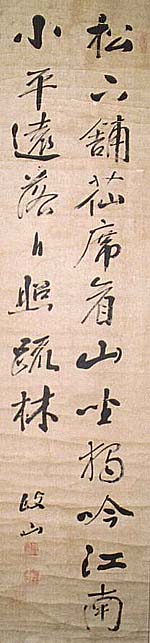 松下鋪苫席看山坐獨吟江南
小平遠落日照疏林